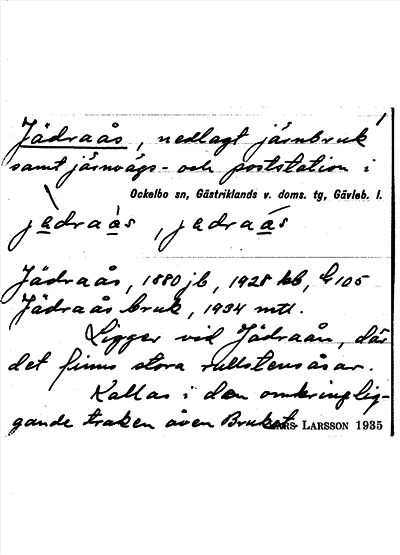 Jädraås, nedlagt järnbruk
samt järnvägs- och poststation i
Ockelbo sn, Gästriklands v. doms. tg, Gävleb. l.
jädraås, jädraås
Jädraås, 1880 jb, 1928 kb, G 105
Jädraås bruk, 1934 mtl.
Ligger vid Jädraån, där
det finns stora rullstensåsar.
Kallas i den omkringlig-
gande traken även Bruket.
LARS LARSSON 1935